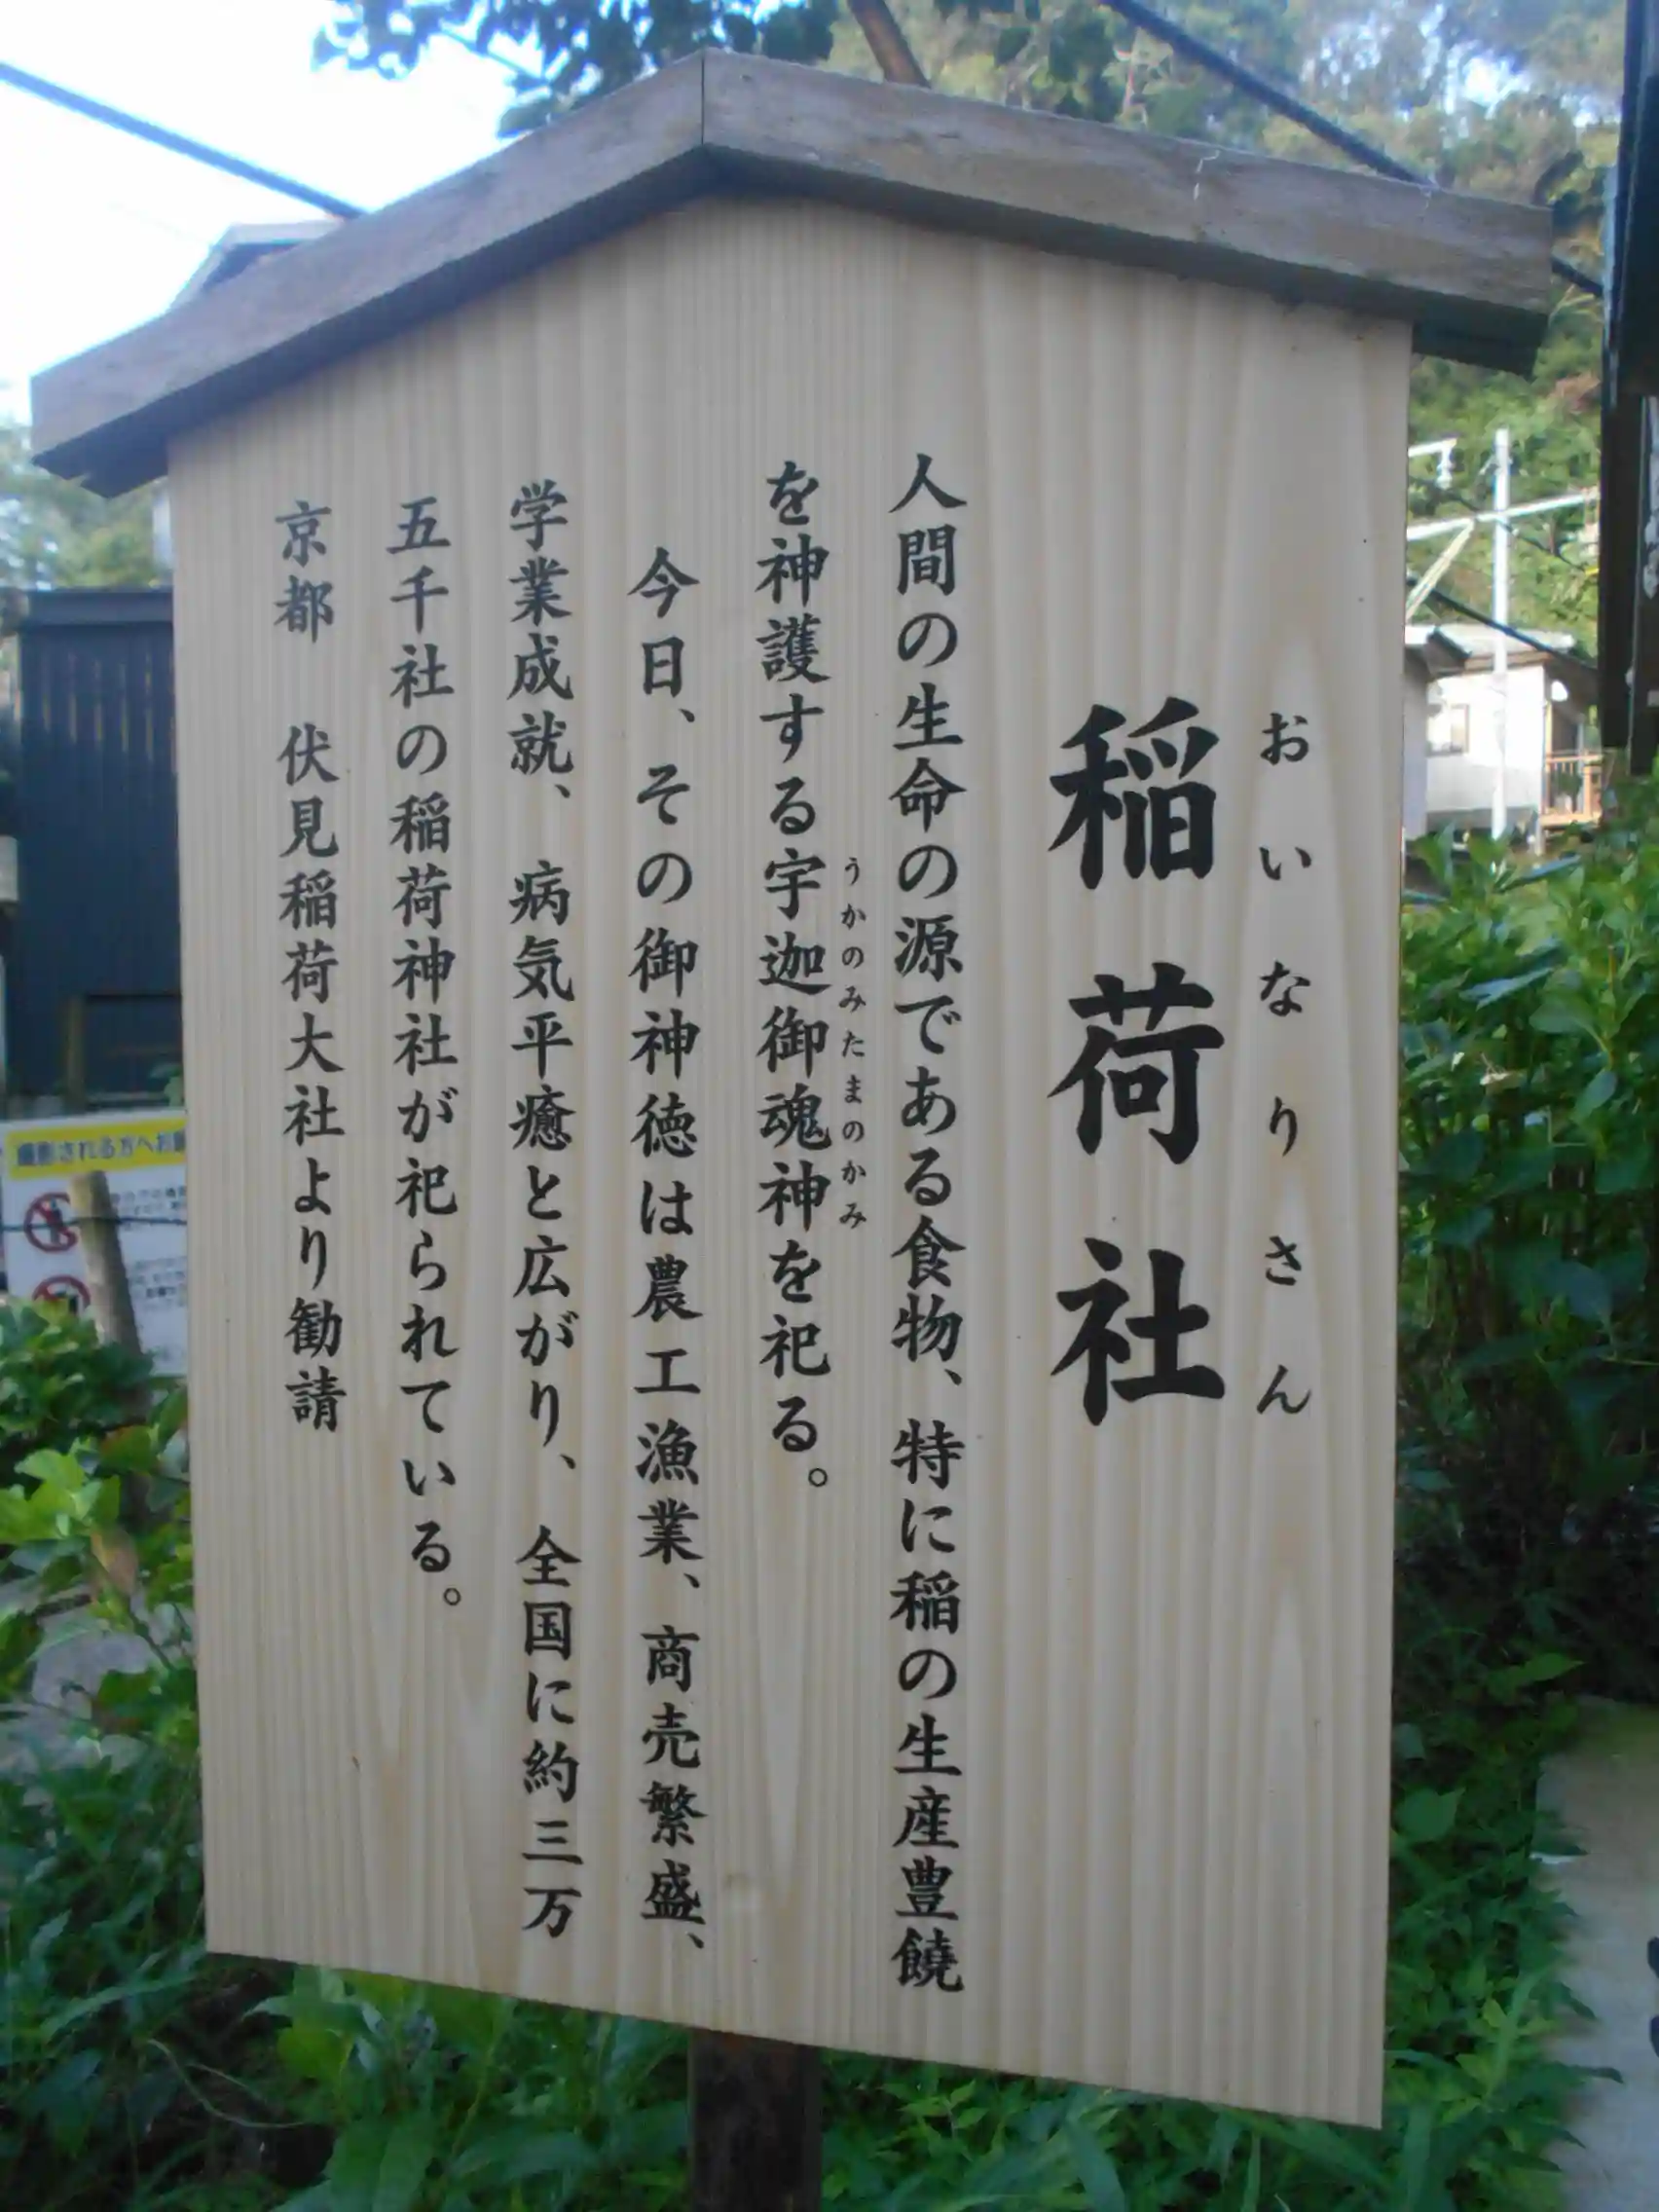 おいなりさん
稲荷社
人間の生命の源である食物、特に稲の生産豊饒
うかのみたまのかみ
を神護する宇迦御魂神を祀る。
今日、その御神徳は農工漁業、商売繁盛、
学業成就、病気平癒と広がり、全国に約三万
五千社の稲荷神社が祀られている。
京都　伏見稲荷大社より勧請
撮影される方へお願